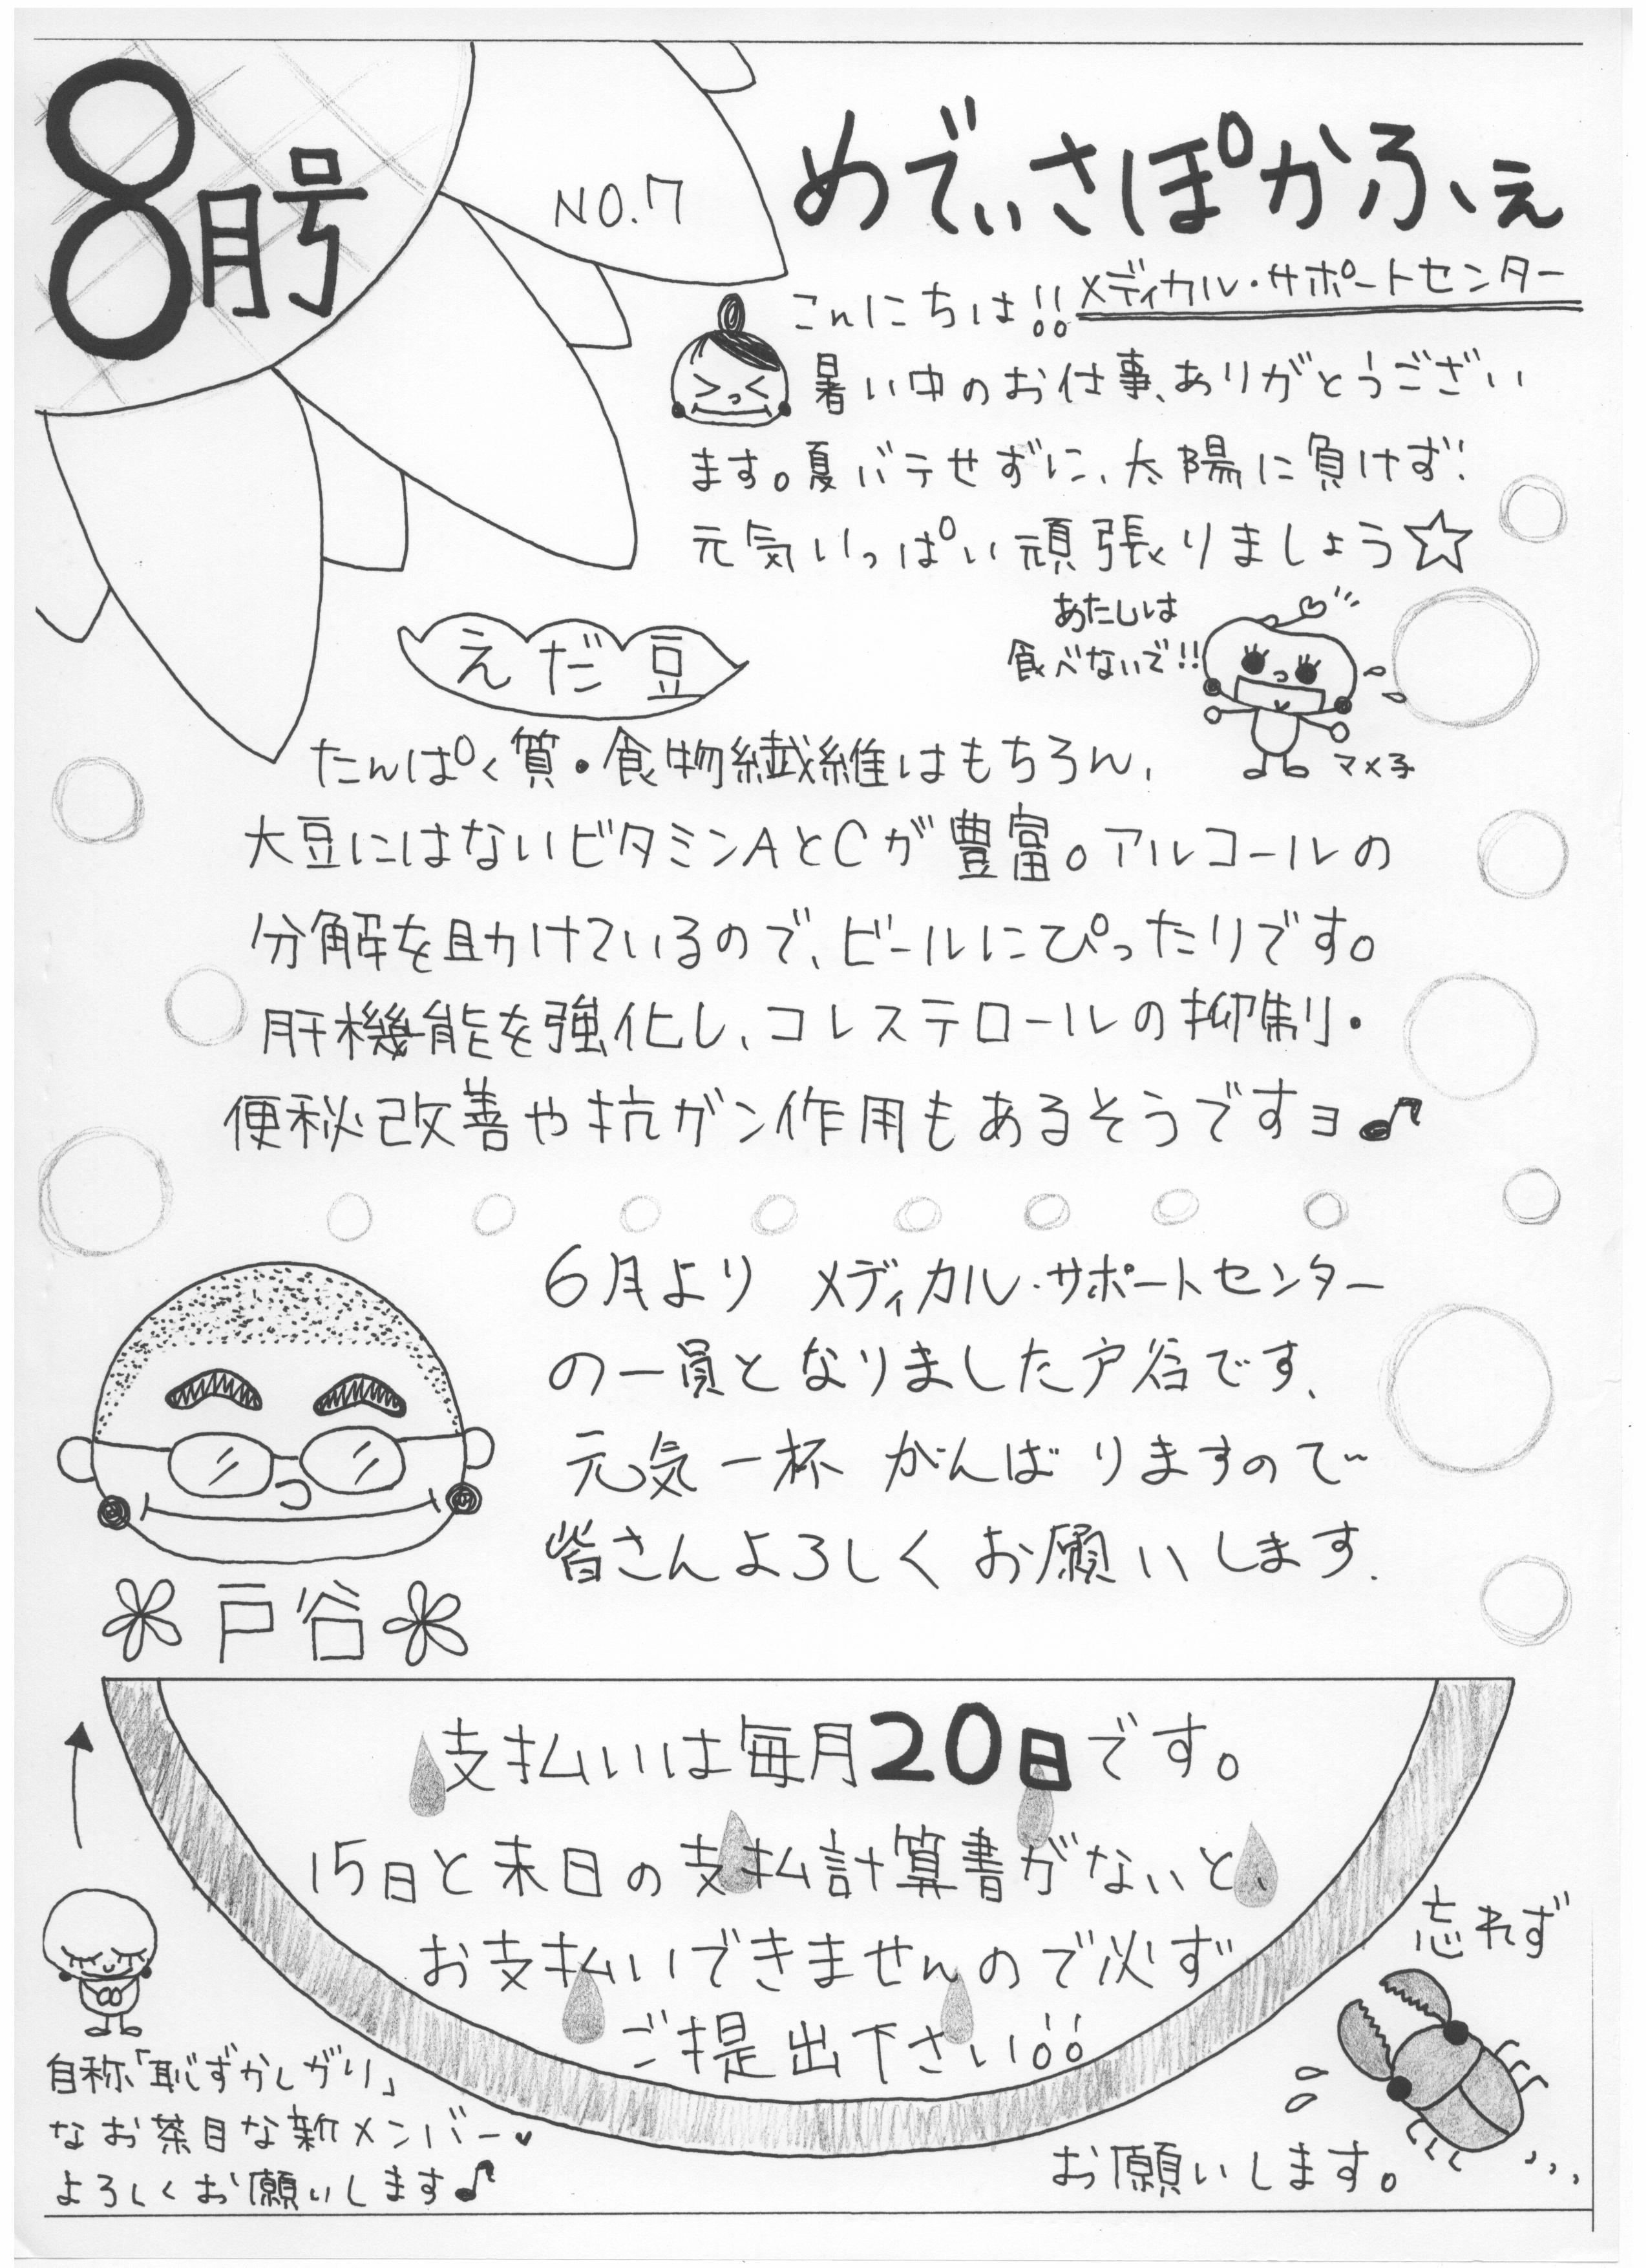 8月号
NO.7
めでぃさぽかふぇ
メディカル・サポートセンター
こんにちは!!
暑い中のお仕事、ありがとうござい
ます。夏バテせずに、太陽に負けず!
元気いっぱい頑張りましょう☆
あたしは
食べないで!!
マメ子
えだ豆
たんぱく質・食物繊維はもちろん、
大豆にはないビタミンAとCが豊富。アルコールの
分解を助けているので、ビールにぴったりです。
肝機能を強化し、コレステロールの抑制・
便秘改善や抗ガン作用もあるそうですヨ♪
6月より メディカル・サポートセンター
の一員となりました戸谷です、
元気一杯 がんばりますので
皆さんよろしくお願いします.
戸谷
支払いは毎月20日です。
15日と末日の支払計算書がないと、
お支払いできませんので必ず
ご提出下さい!!
忘れず
お願いします。
自称「恥ずかしがり」
なお茶目な新メンバー♥
よろしくお願いします♪